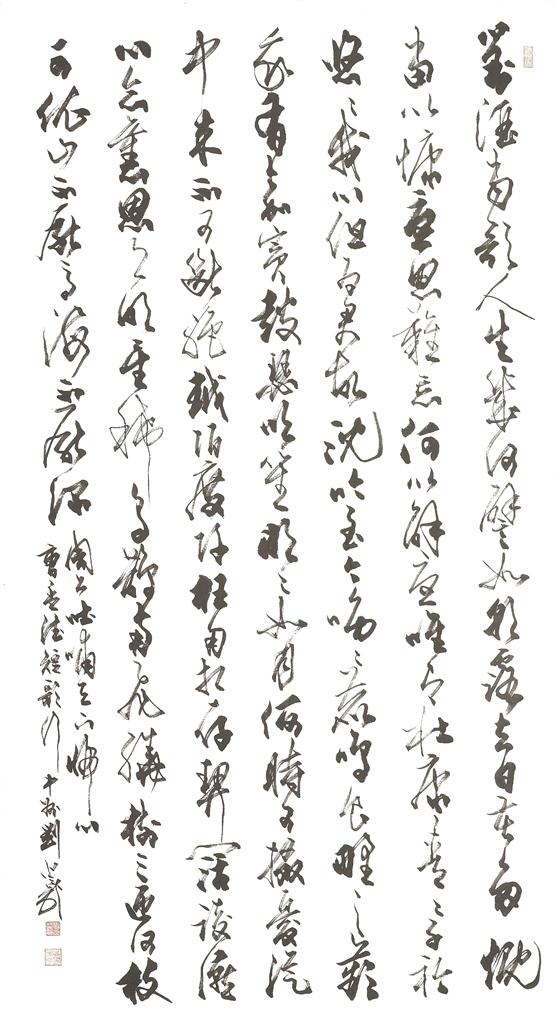 對酒當歌人生幾何譬如朝露去日苦多慨
當以慷憂思難忘何以解憂唯有杜康青〻子衿
悠〻我心但為君故沈吟至今呦〻鹿鳴食野之蘋
我有嘉賓鼓瑟吹笙明〻如月何時可掇憂從
中來不可斷絕越陌度阡枉用相存契闊談讌
心念舊恩月明星稀烏鵲南飛繞樹三匝何枝
可依山不厭高海不厭深
周公吐哺天下歸心
曹孟德短歌行 劉